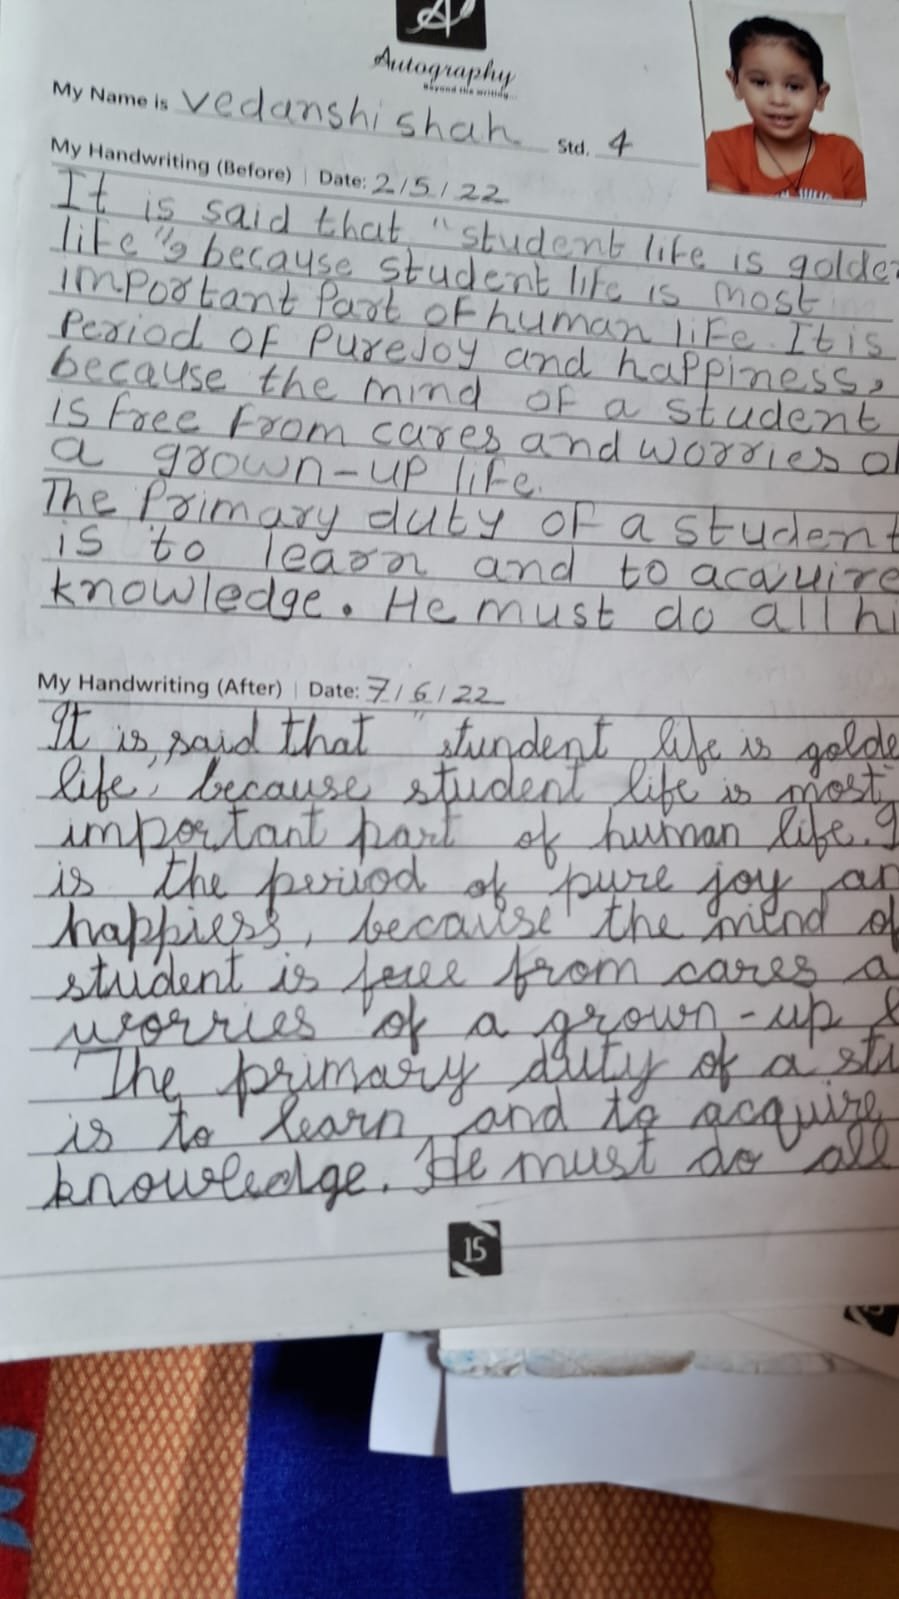 Autography
Beyond the writing...
My Name is vedanshi shah Std. 4
My Handwriting (Before) | Date: 2/5/22
It is said that "student life is golde
life", because student life is most
important Part of human life. It is
Period of Pure Joy and happiness,
because the mind of a student
is free from cares and worries of
a grown-up life.
The Primary duty of a student
is to learn and to acquire
knowledge. He must do all hi
My Handwriting (After) | Date: 7/6/22
It is said that "stundent life is golde
life, because student life is most
important part of human life. I
is the period of pure joy an
happiess, because the mind of
student is free from cares a
worries of a grown-up l
The primary duty of a stu
is to learn and to acquire
knowledge. He must do all
15